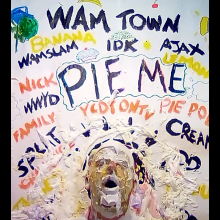 WAM TOWN
BANANA
WAMSLAM IDK AJAX
LEMON
NICK PIE ME
WWYD YCDTOTV PIE
FAMILY CREAM
SPLIT